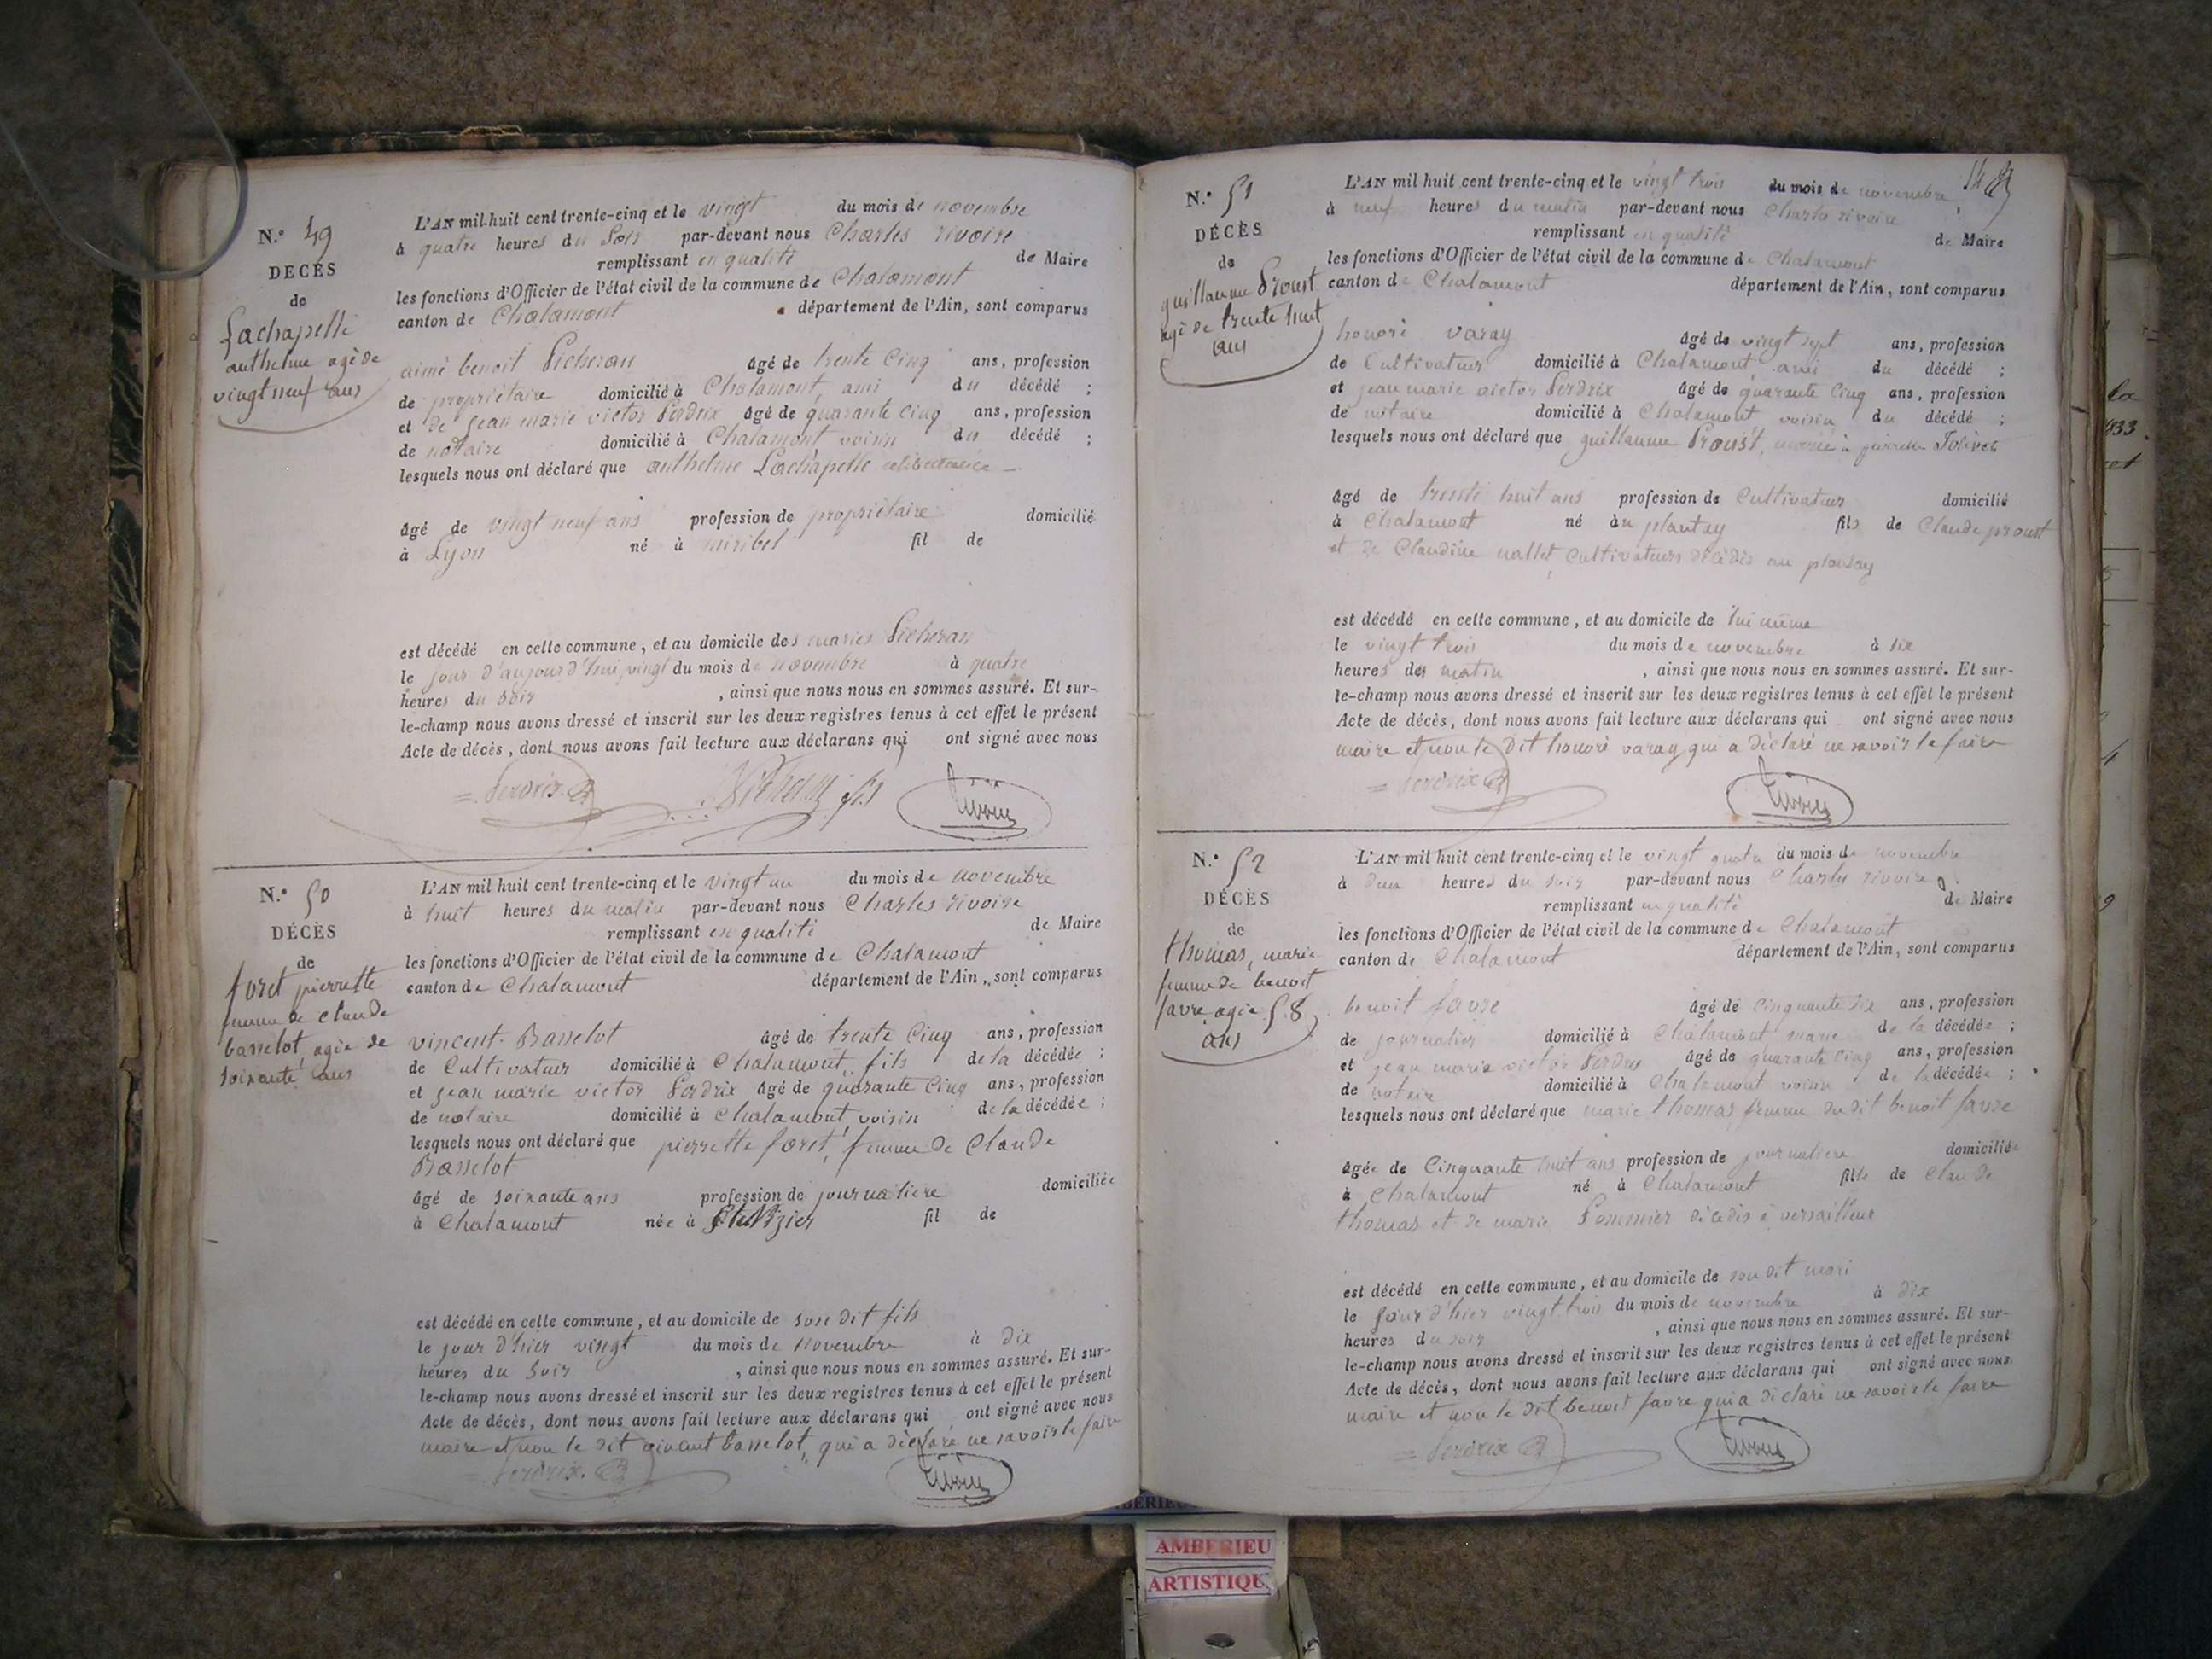 N.° 49
DÉCÈS
de
Lachapelle
anthelme agé de
vingt neuf ans
L'AN mil huit cent trente-cinq et le vingt du mois de novembre
à quatre heures du soir par-devant nous Charles rivoire
remplissant en qualité de Maire
les fonctions d'Officier de l'état civil de la commune de Chalamont
canton de Chalamont département de l'Ain, sont comparus
aimé benoit Picheran âgé de trente cinq ans, profession
de propriétaire domicilié à Chalamont, ami du décédé ;
et de jean marie victor Perdrix âgé de quarante cinq ans, profession
de notaire domicilié à Chalamont voisin du décédé ;
lesquels nous ont déclaré que anthelme Lachapelle celibataire
âgé de vingt neuf ans profession de propriétaire domicilié
à Lyon né à miribel fil de
est décédé en cette commune, et au domicile des mariés Picheran
le jour d'aujourd'hui vingt du mois de novembre à quatre
heures du soir , ainsi que nous nous en sommes assuré. Et sur-
le-champ nous avons dressé et inscrit sur les deux registres tenus à cet effet le présent
Acte de décès, dont nous avons fait lecture aux déclarans qui ont signé avec nous
Perdrix fils Rivoire
N.° 50
DÉCÈS
de
foret pierrette
femme de claude
basselot, agée de
soixante ans
L'AN mil huit cent trente-cinq et le vingt un du mois de novembre
à huit heures du matin par-devant nous Charles rivoire
remplissant en qualité de Maire
les fonctions d'Officier de l'état civil de la commune de Chalamont
canton de Chalamont département de l'Ain, sont comparus
vincent Basselot âgé de trente cinq ans, profession
de Cultivateur domicilié à Chalamont, fils de la décédée ;
et jean marie victor Perdrix âgé de quarante cinq ans, profession
de notaire domicilié à Chalamont, voisin de la décédée ;
lesquels nous ont déclaré que pierrette foret, femme de Claude
Basselot
âgé de soixante ans profession de journaliere domiciliée
à Chalamont née à fil de
est décédé en cette commune, et au domicile de son dit fils
le jour d'hier vingt du mois de novembre à dix
heures du soir , ainsi que nous nous en sommes assuré. Et sur-
le-champ nous avons dressé et inscrit sur les deux registres tenus à cet effet le présent
Acte de décès, dont nous avons fait lecture aux déclarans qui ont signé avec nous
maire et non le dit vincent basselot, qui a déclaré ne savoir le faire
Perdrix Rivoire
N.° 51
DÉCÈS
de
guillaume Proust
agé de trente huit
ans
L'AN mil huit cent trente-cinq et le vingt trois du mois de novembre
à neuf heures du matin par-devant nous Charles rivoire
remplissant en qualité de Maire
les fonctions d'Officier de l'état civil de la commune de Chalamont
canton de Chalamont département de l'Ain, sont comparus
honoré varay âgé de vingt sept ans, profession
de Cultivateur domicilié à Chalamont ami du décédé ;
et jean marie victor Perdrix âgé de quarante cinq ans, profession
de notaire domicilié à Chalamont voisin du décédé ;
lesquels nous ont déclaré que guillaume Proust, marié à pierrette Jolivet
âgé de trente huit ans profession de Cultivateur domicilié
à Chalamont né au plantay fils de Claude proust
et de Claudine vallet, cultivateurs décédés au plantay
est décédé en cette commune, et au domicile de lui même
le vingt trois du mois de novembre à six
heures du matin , ainsi que nous nous en sommes assuré. Et sur-
le-champ nous avons dressé et inscrit sur les deux registres tenus à cet effet le présent
Acte de décès, dont nous avons fait lecture aux déclarans qui ont signé avec nous
maire et non le dit honoré varay, qui a déclaré ne savoir le faire
Perdrix Rivoire
N.° 52
DÉCÈS
de
thomas, marie
femme de benoit
favre, agée 58
ans
L'AN mil huit cent trente-cinq et le vingt quatre du mois de novembre
à deux heures du soir par-devant nous Charles rivoire
remplissant en qualité de Maire
les fonctions d'Officier de l'état civil de la commune de Chalamont
canton de Chalamont département de l'Ain, sont comparus
benoit favre âgé de cinquante six ans, profession
de journalier domicilié à Chalamont, marie de la décédée ;
et jean marie victor Perdrix âgé de quarante cinq ans, profession
de notaire domicilié à Chalamont voisin de la décédée ;
lesquels nous ont déclaré que marie thomas, femme du dit benoit favre
âgée de Cinquante huit ans profession de journaliere domiciliée
à Chalamont né à Chalamont fille de Claude
thomas et de marie Pommier décédés à versailleux
est décédé en cette commune, et au domicile de son dit mari
le jour d'hier vingt trois du mois de novembre à dix
heures du soir , ainsi que nous nous en sommes assuré. Et sur-
le-champ nous avons dressé et inscrit sur les deux registres tenus à cet effet le présent
Acte de décès, dont nous avons fait lecture aux déclarans qui ont signé avec nous
maire et non le dit benoit favre qui a déclaré ne savoir le faire
Perdrix Rivoire
AMBERIEU
ARTISTIQUE